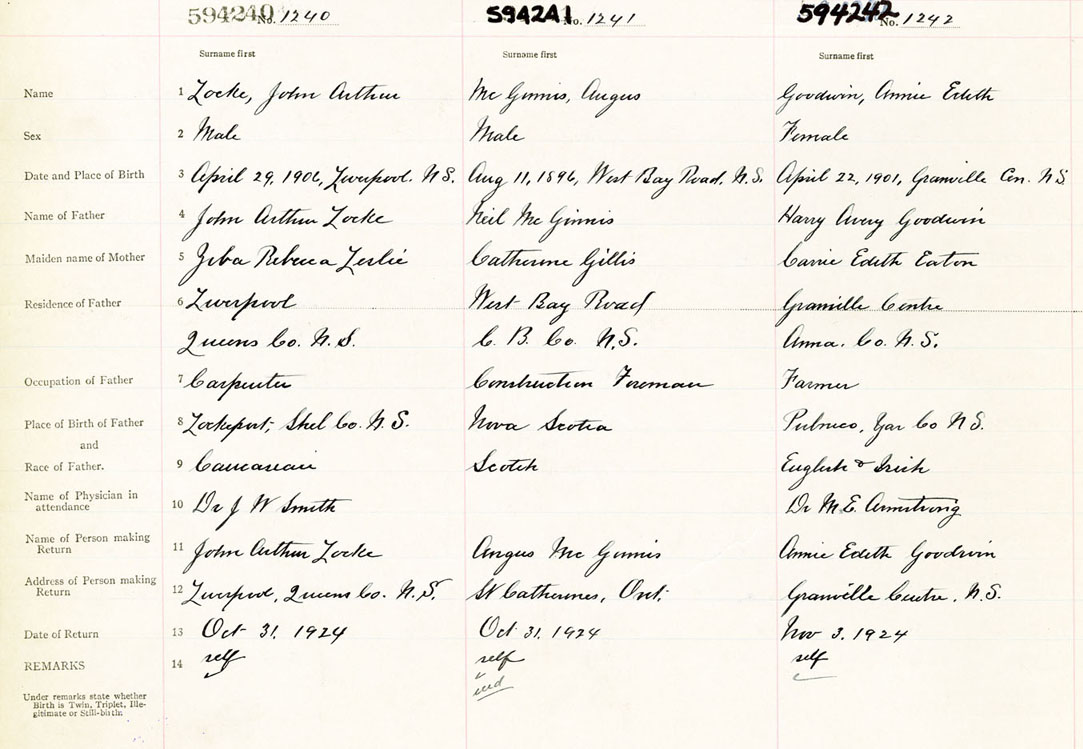 594240 No. 1240 594241 No. 1241 594242 No. 1242
Surname first Surname first Surname first
Name 1 Locke, John Arthur Mc Ginnis, Angus Goodwin, Annie Edith
Sex 2 Male Male Female
Date and Place of Birth 3 April 29, 1906, Liverpool. N.S. Aug 11, 1896, West Bay Road, N.S. April 22, 1901, Granville Cen. N.S
Name of Father 4 John Arthur Locke Neil Mc Ginnis Harry Avery Goodwin
Maiden name of Mother 5 Rebecca Leslie Catherine Gillis Carrie Edith Eaton
Residence of Father 6 Liverpool West Bay Road Granville Centre
Queens Co. N.S. C. B. Co. N.S. Anna. Co. N.S.
Occupation of Father 7 Carpenter Construction Foreman Farmer
Place of Birth of Father 8 Lockeport, Shel Co. N.S. Nova Scotia Pubnico, Yar Co N.S.
and
Race of Father. 9 Caucasean Scotch English & Irish
Name of Physician in
attendance 10 Dr J W Smith Dr M. E. Armstrong
Name of Person making
Return 11 John Arthur Locke Angus Mc Ginnis Annie Edith Goodwin
Address of Person making
Return 12 Liverpool, Queens Co. N.S. St Catherines, Ont. Granville Centre, N.S.
Date of Return 13 Oct 31, 1924 Oct 31, 1924 Nov 3, 1924
REMARKS 14 self self self
Under remarks state whether
Birth is Twin, Triplet, Ille-
gitimate or Still-birth.